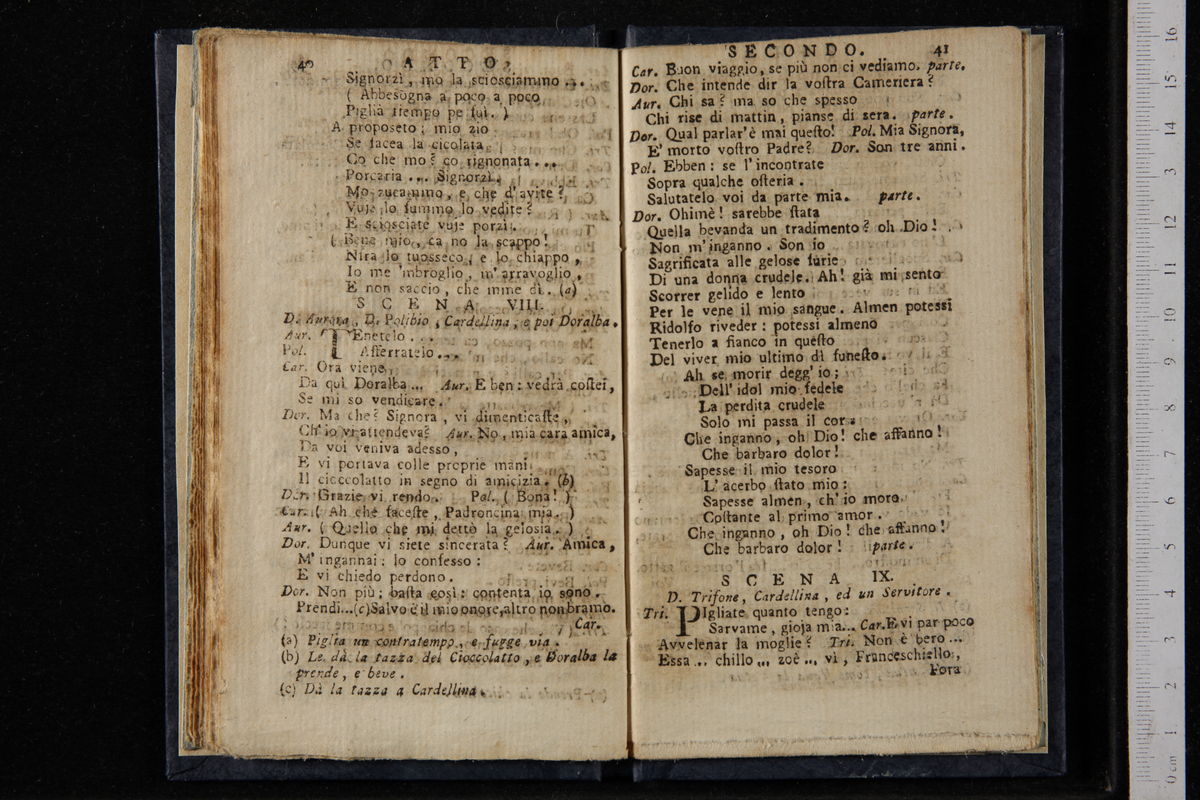 40 ATTO
Signorzì, mo la sciosciammo ...
( Abbesogna a poco a poco
Piglià tiempo pe fuì. )
A proposeto; mio zio
Se facea la cicolata
Co che mo? co rignonata ...
Porcaria ... Signorzì.
Mo zucammo, e che d'avite?
Vuje lo fummo lo vedite?
E sciosciate vuje porzì.
( Bene mio, ca no la scappo!
Nira lo tuosseco, e lo chiappo,
Io me 'mbroglio, m' arravoglio,
E non saccio, che mme dì. (a)
SCENA VIII.
D. Aurora, D. Polibio, Cardellina, e poi Doralba.
Aur. TEnetelo ...
Pol. Afferratelo ...
Car. Ora viene
Da quì Doralba ... Aur. E ben: vedrà coſtei,
Se mi so vendicare.
Dor. Ma che? Signora, vi dimenticaſte,
Ch' io vi attendeva? Aur. No, mia cara amica,
Da voi veniva adesso,
E vi portava colle proprie mani
Il cioccolatto in segno di amicizia. (b)
Dor. Grazie vi rendo. Pol. ( Bona! )
Car. ( Ah che faceſte, Padroncina mia. )
Aur. ( Quello che mi dettò la gelosia. )
Dor. Dunque vi siete sincerata? Aur. Amica,
M' ingannai: lo confesso:
E vi chiedo perdono.
Dor. Non più; baſta così: contenta io sono.
Prendi...(c) Salvo è il mio onore, altro non bramo.
Car.
(a) Piglia un contratempo, e fugge via.
(b) Le dà la tazza del Cioccolatto, e Doralba la
prende, e beve.
(c) Dà la tazza a Cardellina.
SECONDO. 41
Car. Buon viaggio, se più non ci vediamo. parte.
Dor. Che intende dir la voſtra Cameriera?
Aur. Chi sa? ma so che spesso
Chi rise di mattin, pianse di sera. parte.
Dor. Qual parlar'è mai queſto! Pol. Mia Signora,
E' morto voſtro Padre? Dor. Son tre anni.
Pol. Ebben: se l' incontrate
Sopra qualche oſteria.
Salutatelo voi da parte mia. parte.
Dor. Ohimè! sarebbe ſtata
Quella bevanda un tradimento? oh Dio!
Non m' inganno. Son io
Sagrificata alle gelose furie
Di una donna crudele. Ah! già mi sento
Scorrer gelido e lento
Per le vene il mio sangue. Almen potessi
Ridolfo riveder: potessi almeno
Tenerlo a fianco in queſto
Del viver mio ultimo dì funeſto.
Ah se morir degg' io;
Dell' idol mio fedele
La perdita crudele
Solo mi passa il cor.
Che inganno, oh Dio! che affanno!
Che barbaro dolor!
Sapesse il mio tesoro
L' acerbo ſtato mio:
Sapesse almen, ch' io moro
Coſtante al primo amor.
Che inganno, oh Dio! che affanno!
Che barbaro dolor! parte.
SCENA IX.
D. Trifone, Cardellina, ed un Servitore.
Tri. PIgliate quanto tengo:
Sarvame, gioja mia... Car. E vi par poco
Avvelenar la moglie? Tri. Non è bero ...
Essa ... chillo ... zoè ..., vì, Franceschiello,
Fora